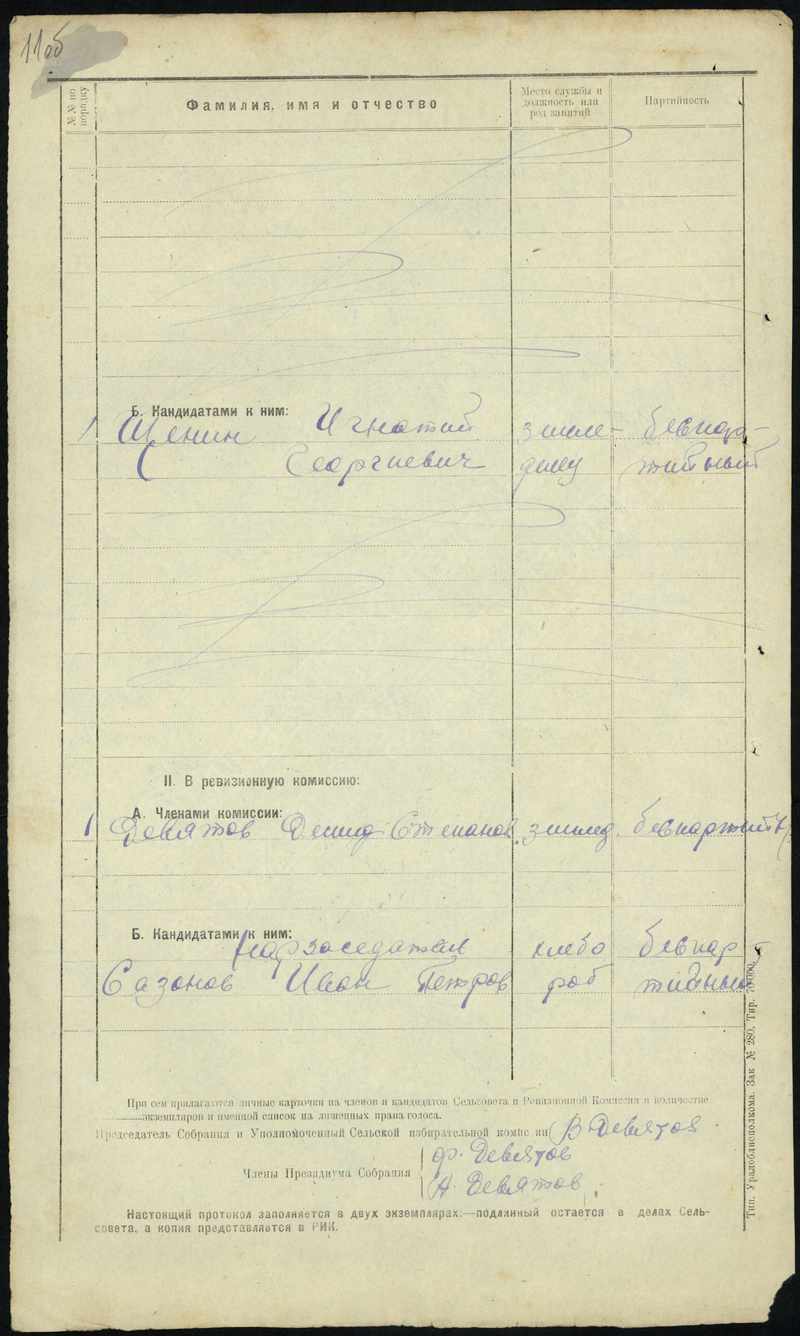 11об
№№ по порядку
Фамилия, имя и отчество
Место службы и должность или род занятий
Партийность
Б. Кандидатами к ним:
1 Щенин Игнатий земле- беспар-
Георгиевич делец тийный
II. В ревизионную комиссию:
А. Членами комиссии:
1 Девятов Демид Степанов. землед. беспартийн
Б. Кандидатами к ним:
Нарзаседатели хлебо беспар
Сазонов Иван Петров роб тийный
При сем прилагаются личные карточки на членов и кандидатов Сельсовета и Ревизионной Комиссии в количестве
экземпляров и именной список на лишенных права голоса.
Председатель Собрания и Уполномоченный Сельской избирательной комиссии (В Девятов
Члены Президиума Собрания
Ф. Девятов
А. Девятов
Настоящий протокол заполняется в двух экземплярах:—подлинный остается в делах Сель-
совета, а копия представляется в РИК.
Тип. Уралоблисполкома. Зак № 280. Тир.